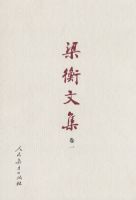 梁衡文集
卷一
人民教育出版社